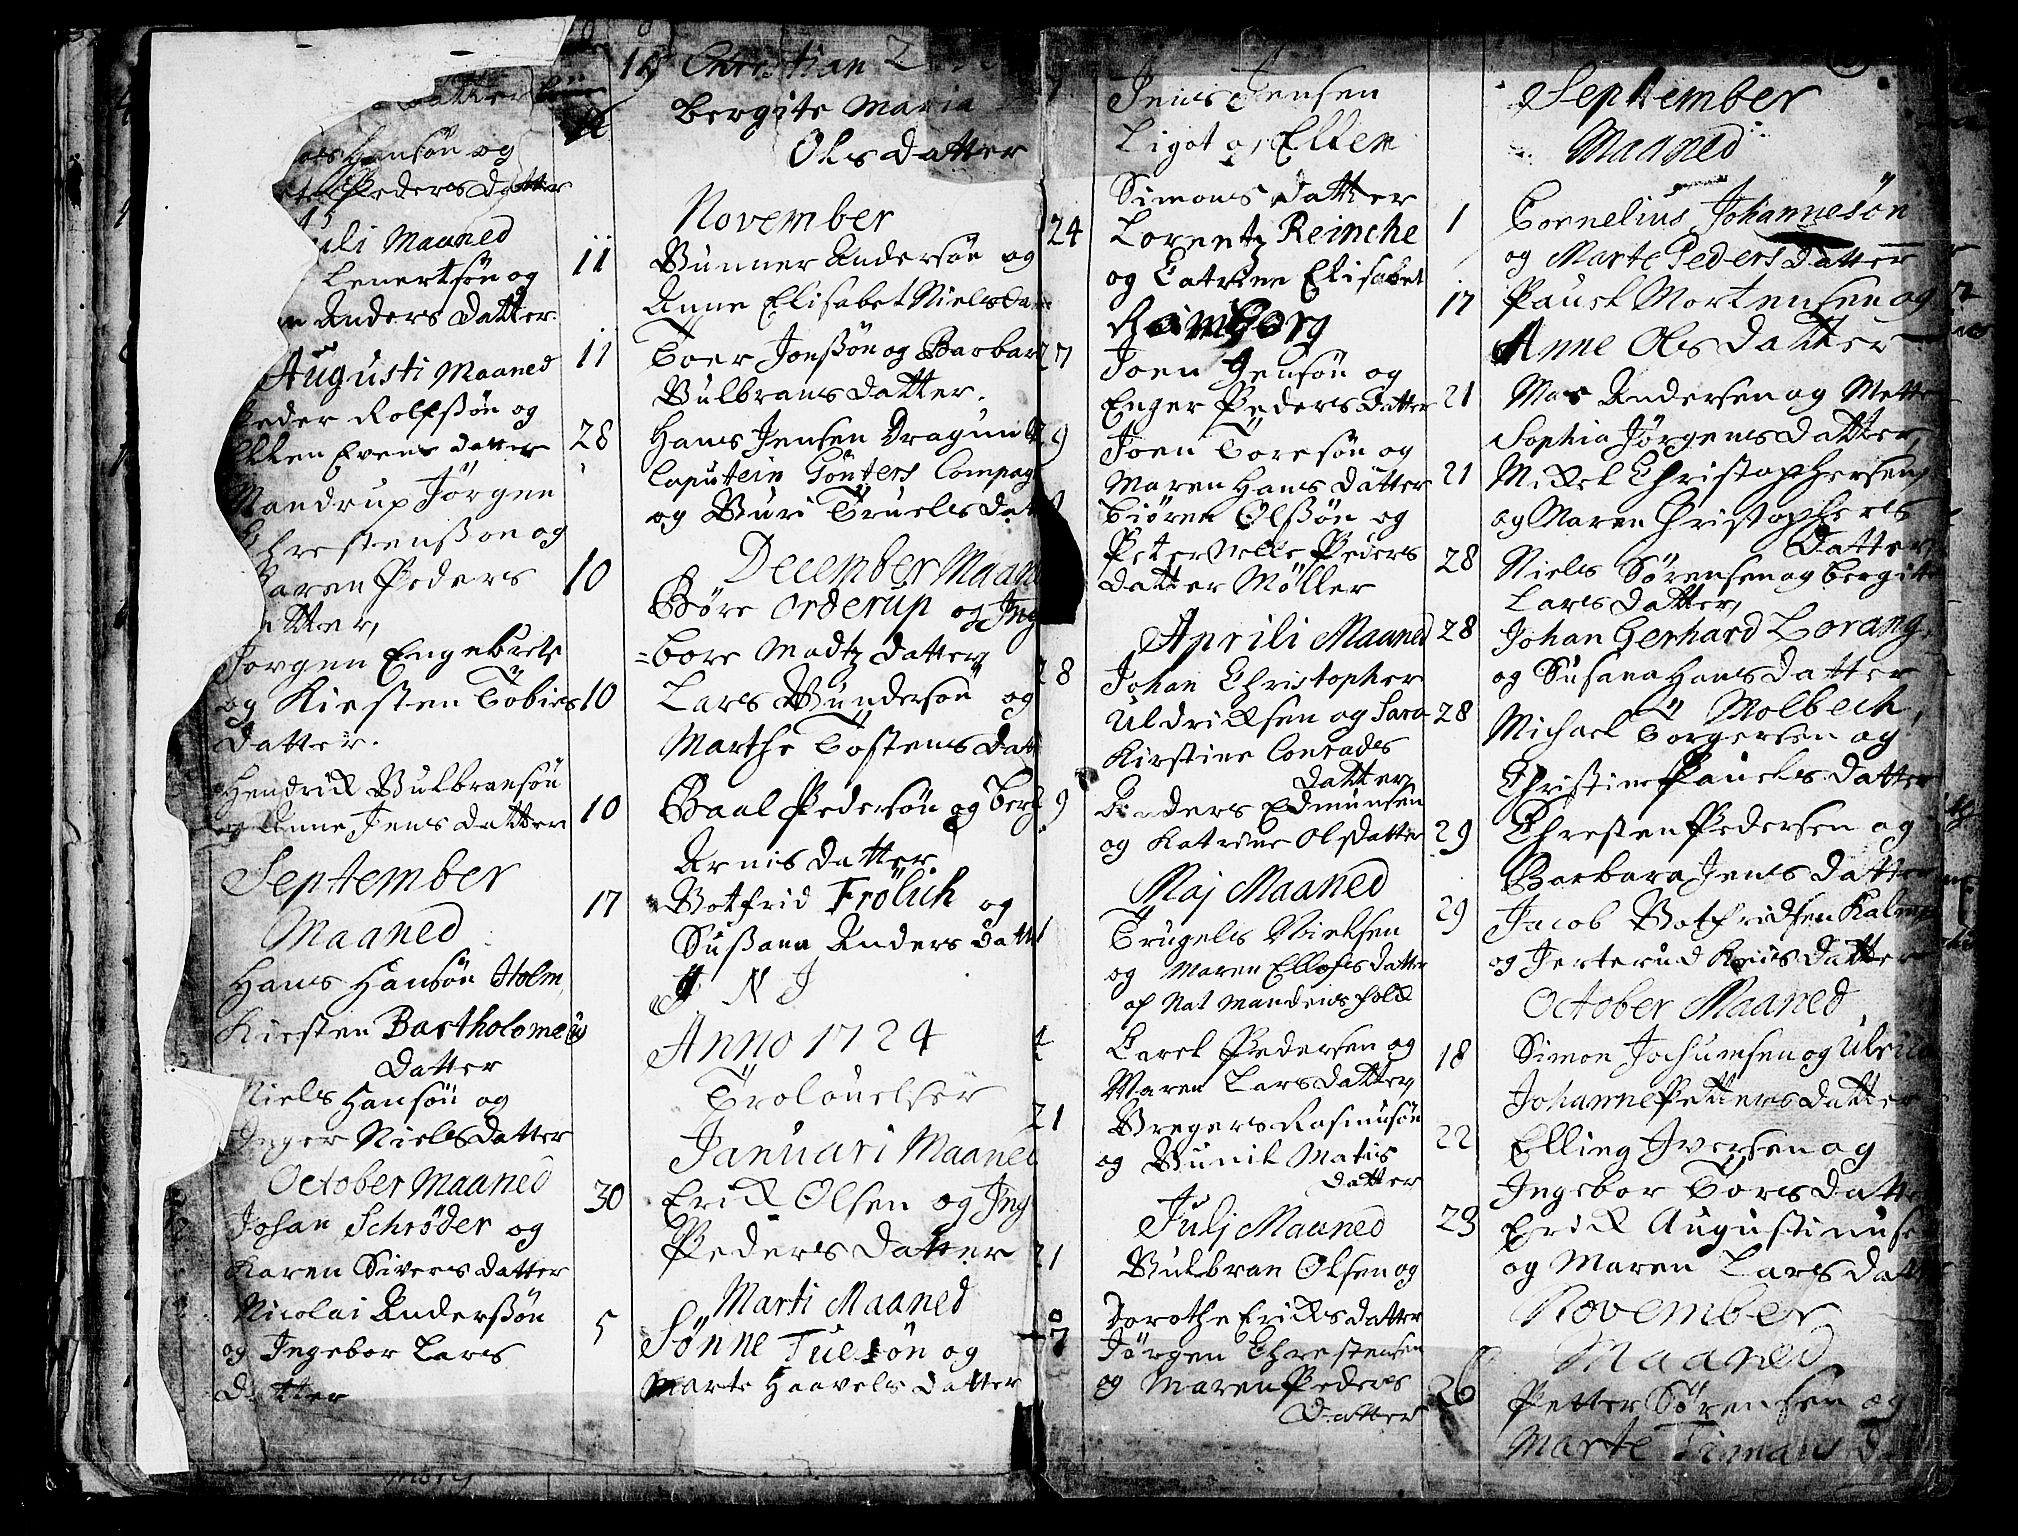 Datter
Hansøn og
Peders Datter
uli Maaned
Lenertsøn og
Anders Datter
Augusti Maaned
Peder Rolfsøn og
Ellen Evens Datter
Mandrup Jörgen
Chrestensøn og
Karen Peders
Datter,
Jørgen Engebrets
og Kirsten Tobies
Datter.
Hendrick Gulbransøn
og Anne Jens Datter
September
Maaned
Hans Hansøn Holm
Kirsten Bartholomei
Datter
Niels Hansøn og
Inger Niels Datter
October Maaned
Johan Schrøder og
Karen Sivers Datter
Nicolai Anderssøn
og Ingebor Lars
Datter
19 Christian
Bergite Maria
Ols Datter
November
11 Gunner Andersøn og
Anne Elisabet Niels Da
11 Toer Jonssøn og Barbar
Gulbrans Datter.
28 Hans Jensen Dragun
Caputein Gönters Compag
og Guri Truels Dat
December Maan
10 Børe Orderup og Ing
=bore Madtz Datter
10 Lars Gundersøn og
Marthe Tostens Datt
10 Paal Pedersøn og Ber
Arnis Datter
17 Gotfrid Frölich og
Sussana Anders Datt
I N J
Anno 1724
Trolouelser
Januari Maaned
30 Erick Olsen og Ing
Peders Datter
Marti Maaned
5 Sønne Tuesøn og
Marte Haavels Datter
Jens Jensen
Ligot og Ellen
Simons Datter
24 Lorentz Reinche
og Catrine Elisabet
Reimborg
27 Joen Jensøn og
Enger Peders Datter
29 Joen Toresøn og
Maren Hans Datter
Biören Olssøn og
Peternelle Peders
Datter Møller
Aprili Maaned
28 Johan Christopher
Uldricksen og Sara
Kirstine Conrads
Datter
9 Anders Edmunsen
og Katrine Olsdatter
Maj Maaned
1 Trugels Nielsen
og Maren Ellofs Datter
af Nat Mandens folck
4 Carel Pedersen og
Maren Lars Datter
21 Gregers Rasmusøn
og Gunil Matis
Datter
Julj Maaned
21 Gulbran Olsen og
Dorothe Ericks Datter
7 Jörgen Chrestensen
og Maren Peders
Datter
September
Maaned
1 Cornelius Johannesön
og Marte Peders Datter
17 Pauel Mortensen og
Anne Ols Datter
21 Mas Andersen og Mette
Sophia Jørgens Datter,
21 Mickel Christophersen
og Maren Christophers
Datter
28 Niels Sørensen og Bergite
Lars Datter,
28 Johan Gerhard Lorang
og Susana Hans Datter
28 Michael Torgersen Molbech,
og
Christine Pauels Datter
29 Chresten Pedersen og
Barbara Jens Datter
29 Jacob Gotfridsen Kalmy
og Jerterud Knus Datter
October Maaned
18 Simon Jochumsen og Ulrica
Johanne Petters Datter
22 Elling Iversen og
Ingebor Tors Datte
29 Erick Augustinuse
og Maren Lars Datt
November
Maaned
26 Petter Sørensen og
Marte Timans Da